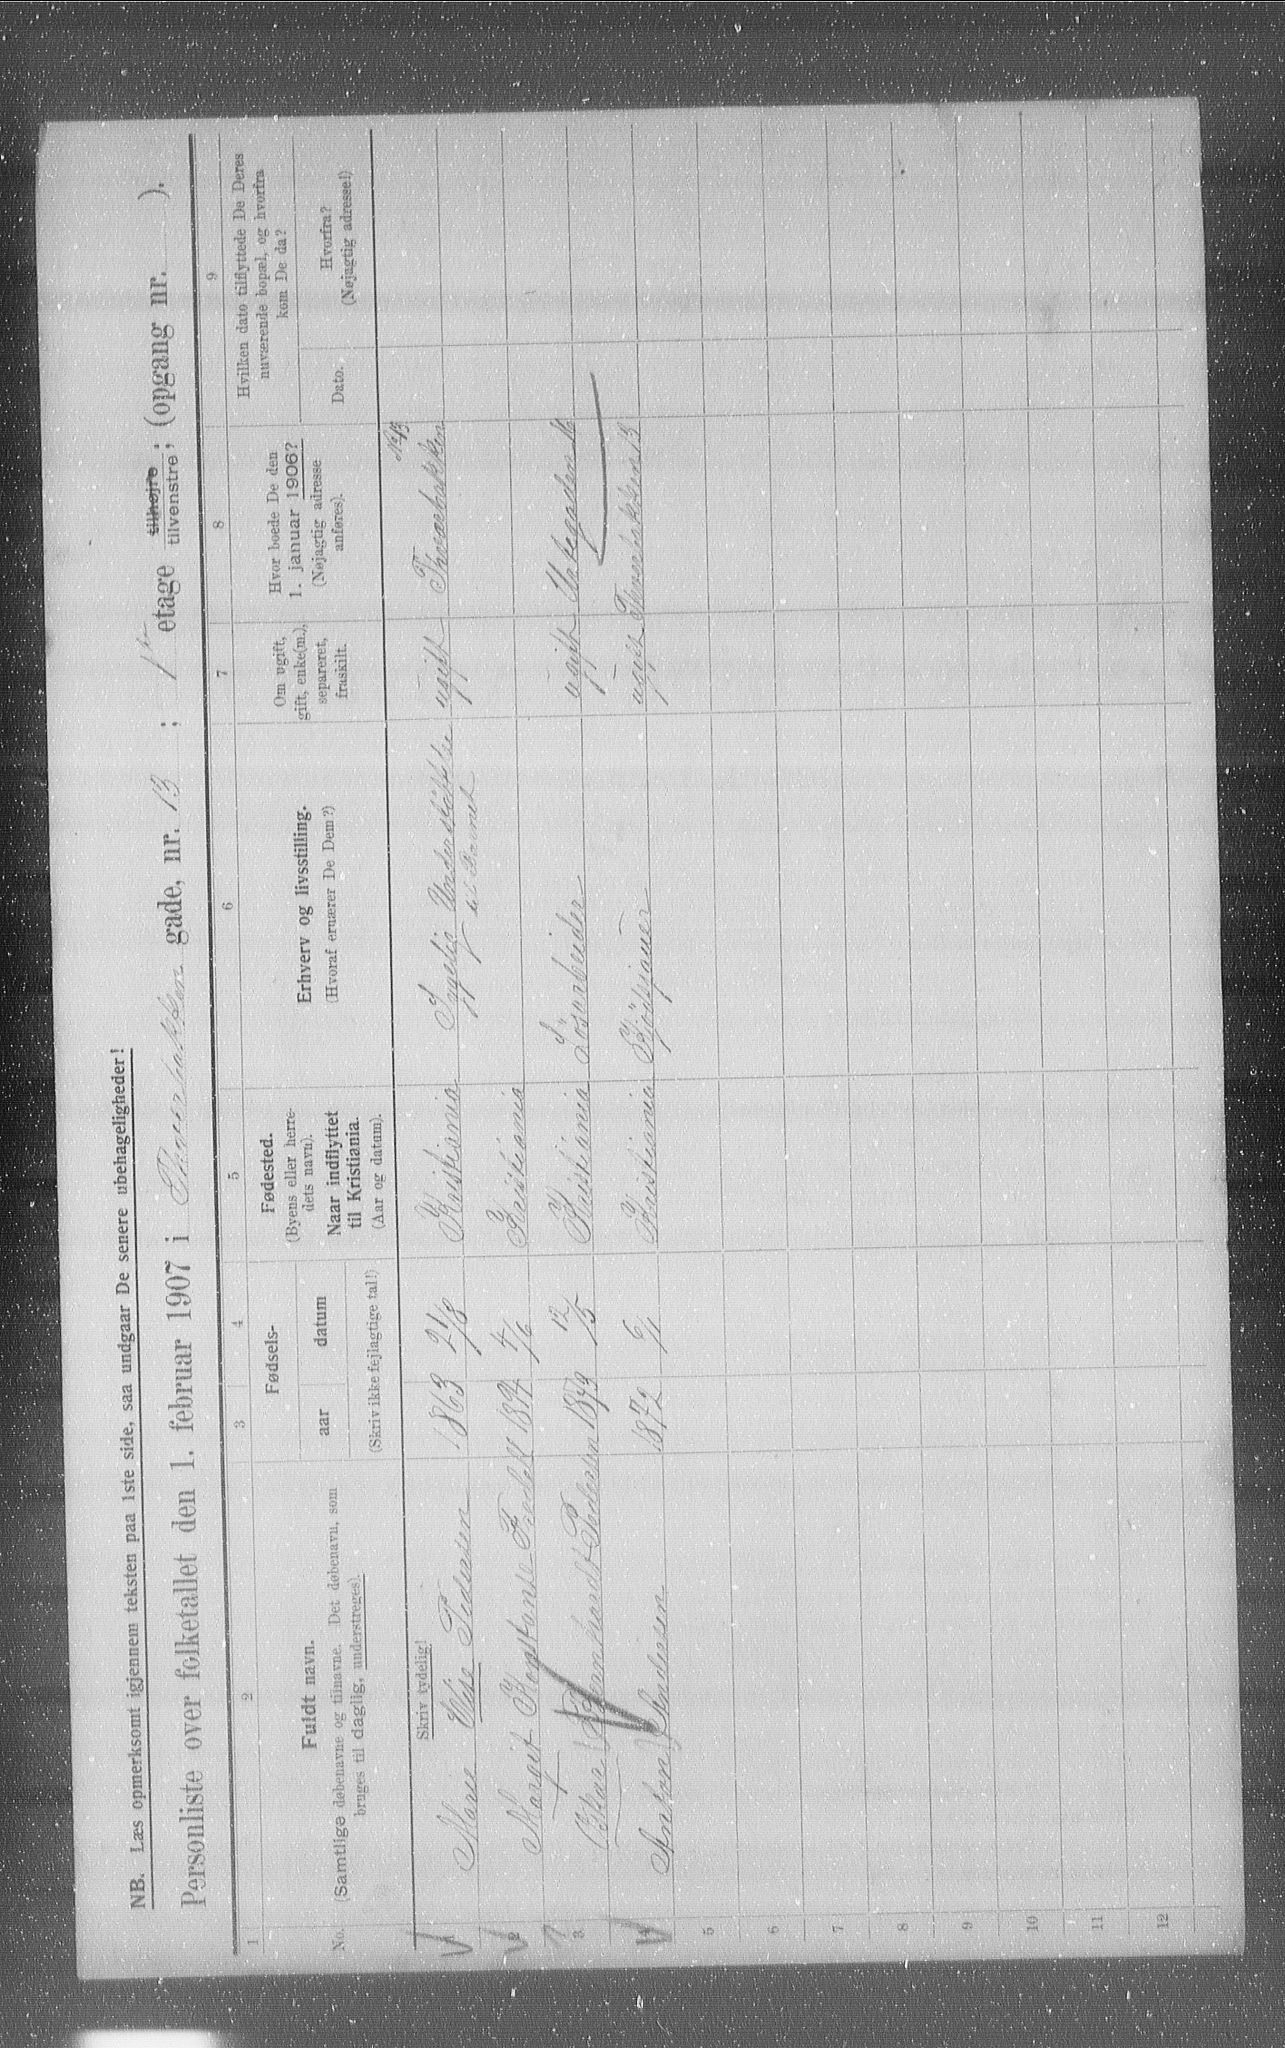 NB. Læs opmerksomt igjennem teksten paa 1ste side, saa undgaar De senere ubehageligheder!
Personliste over folketallet den 1. februar 1907 i Thverbakken gade, nr. 13; 1ste etage tilhøjre tilvenstre; (opgang nr. ).
1 2 3 4 5 6 7 8 9
No.
Fuldt navn.
(Samtlige døbenavne og tilnavne. Det døbenavn, som
bruges til daglig, understreges).
Fødsels-
aar datum
(Skriv ikke fejlagtige tal!)
Fødested.
(Byens eller herre-
dets navn).
Naar indflyttet
til Kristiania.
(Aar og datum).
Erhverv og livsstilling.
(Hvoraf ernærer De Dem?)
Om ugift,
gift, enke(m.),
separeret,
fraskilt.
Hvor boede De den
1. januar 1906?
(Nøjagtig adresse
anføres).
Hvilken dato tilflyttede De Deres
nuværende bopæl, og hvorfra
kom De da?
Dato.
Hvorfra?
(Nøjagtig adresse!)
Skriv tydelig!
No 13
1 Marie Elise Pedersen 1863 21/8 Kristiania Ingelig Understøttelse ugift Thverbakken
2 Margit Konstanse Kristiania
3 Oskar Bernhardt Pedersen 1873 12/5 Kristiania Løsarbeider ugift 16
4 Anton Andersen 1872 6/1 Kristiania ugift Thverbakken 13
5
6
7
8
9
10
11
12